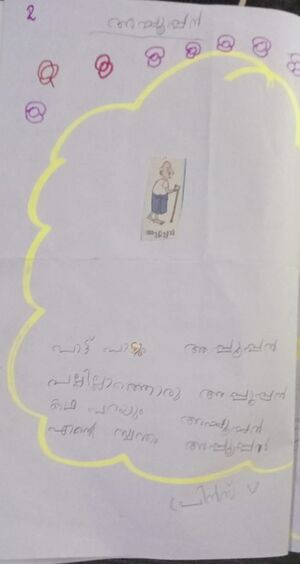 2
അപ്പൂപ്പൻ
അപ്പൂപ്പൻ
പാട്ട് പാടും അപ്പൂപ്പൻ
പല്ലില്ലാത്തൊരു അപ്പൂപ്പൻ
കഥ പറയും അപ്പൂപ്പൻ
എന്റെ സ്വന്തം അപ്പൂപ്പൻ
പ്രിൻസ് V